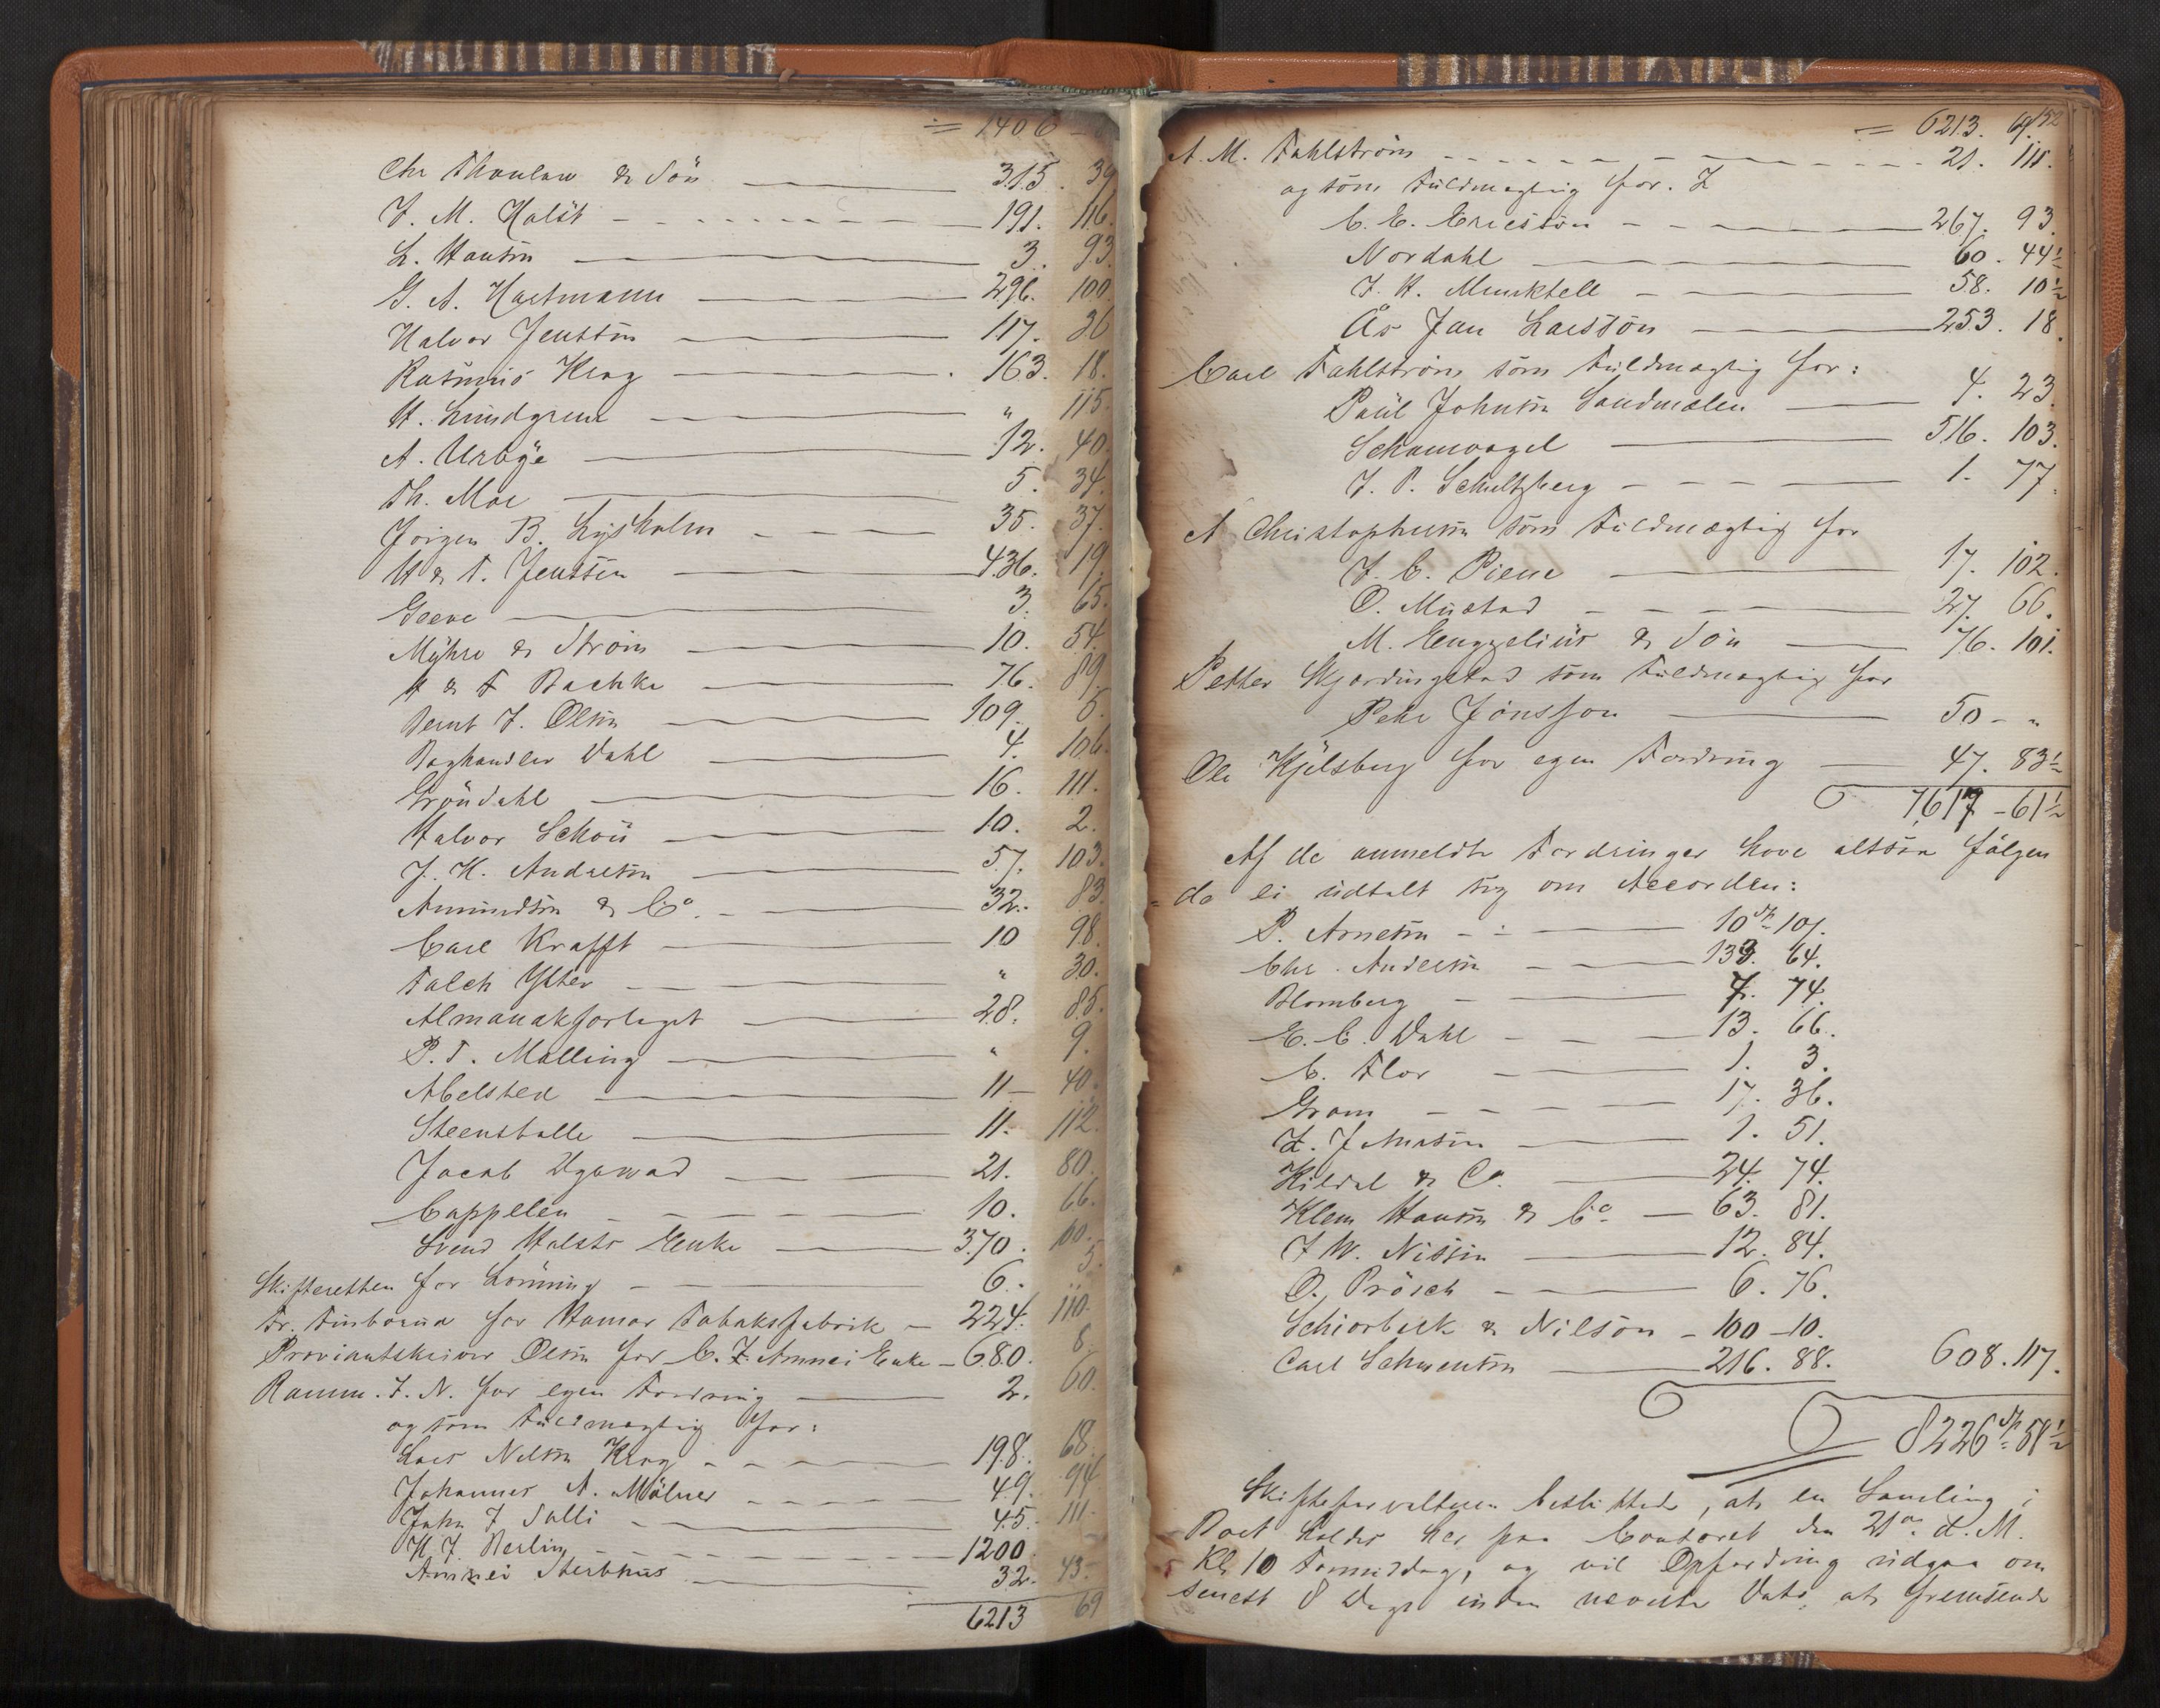 = 1406 -
Chr Thaulow & Søn — 315. 39
J. M. Holst — 191. 116.
L. Hansen — 3. 93.
G. A. Hartmann — 296. 100
Halvor Jenssen — 117. 36
Rasmus Krog — 163. 18.
H. Lundgreen — " 115.
A. Urbye — 12. 40.
Th. Moe — 5. 34.
Jørgen B. Lysholm — 35. 37.
H & T. Jenssen — 436. 19.
Greve — 3. 65.
Myhre & Strøm — 10. 54.
H & F Bachke — 76. 89.
Bernt J. Olsen — 109. 5.
Boghandler Dahl — 4. 106.
Grøndahl — 16. 111.
Halvor Schou — 10. 2.
J. H. Andresen — 57. 103.
Amundsen & Co. — 32. 83.
Carl Krafft — 10 98.
Falck Ytter — " 30.
Almanakforlaget — 28. 85.
P. T. Malling — " 9.
Abelsted — 11 - 40.
Steenstalle — 11. 112.
Jacob — 21. 80.
Cappelen — 10. 66.
Svend Holsts Enke — 370. 100.
Skifteretten for Lønning — 6. 5.
Fr. for Hamar Tobaksfabrik — 224. 110.
Proviantskriver Olsen for C. F. Amnéi Enke — 680. 8.
Ramm. J. N. for egen Fordring — 2. 60.
og som Fuldmægtig for:
Lars Nilsen Krog — 198. 68.
Johannes A. Mølner — 49. 94
John J Salli — 45. 111.
H. J. Berlin — 1200
Amnéi Sterbhus — 32. 43.
6213 69
= 6213. 69. 152
A. M. Fahlstrøm — 21. 111.
og som Fuldmægtig for.
C. E. Ericsson — 267. 93.
Nordahl — 60. 44½
J. H. Munktell — 58. 10½
Ås Jan Larsson — 253. 18.
Carl Fahlstrøm som Fuldmægtig for:
Paul Johnsen Sandmælen — 4. 23.
Schamvogel — 516. 103.
J. P. Schultzberg — 1. 77.
A Christophersen som Fuldmægtig for
J. C. Piene — 17. 102.
O. Mustad — 27. 66.
M. Enggelius & Søn — 76. 101.
Petter Hjordingstad som Fuldmægtig for
Pehr Jonsson — 50 - "
Ole Kjelsberg for egen Fordring — 47. 83½
7617 - 61½
Af de anmeldte Fordringer have altsaa følgen
= de ei udtalt sig om Accorden:
P. Arnesen — 10 Sp 107.
Chr. Andersen — 133. 64.
Blomberg — 7. 74.
E. C. Dahl — 13. 66.
C. Flor — 1. 3.
Gram — 17. 36.
— 1. 51.
Kildal & Co. — 24. 74.
Klem Hansen & Co. — 63. 81.
J W. Nissen — 12. 84.
O. Prøsch — 6. 76.
Schiorbeck & Nilson — 100 - 10.
Carl Schwensen — 216. 88. 608. 117.
8226 Sp 58½
Skifteforvalteren besluttede, at en Samling i
Boet holdes her paa Contoret den 21de d. M.
Kl 10 Formiddag, og vil Opfordring udgaa om
senest 8 Dage inden nævnte Dato, at fremsende